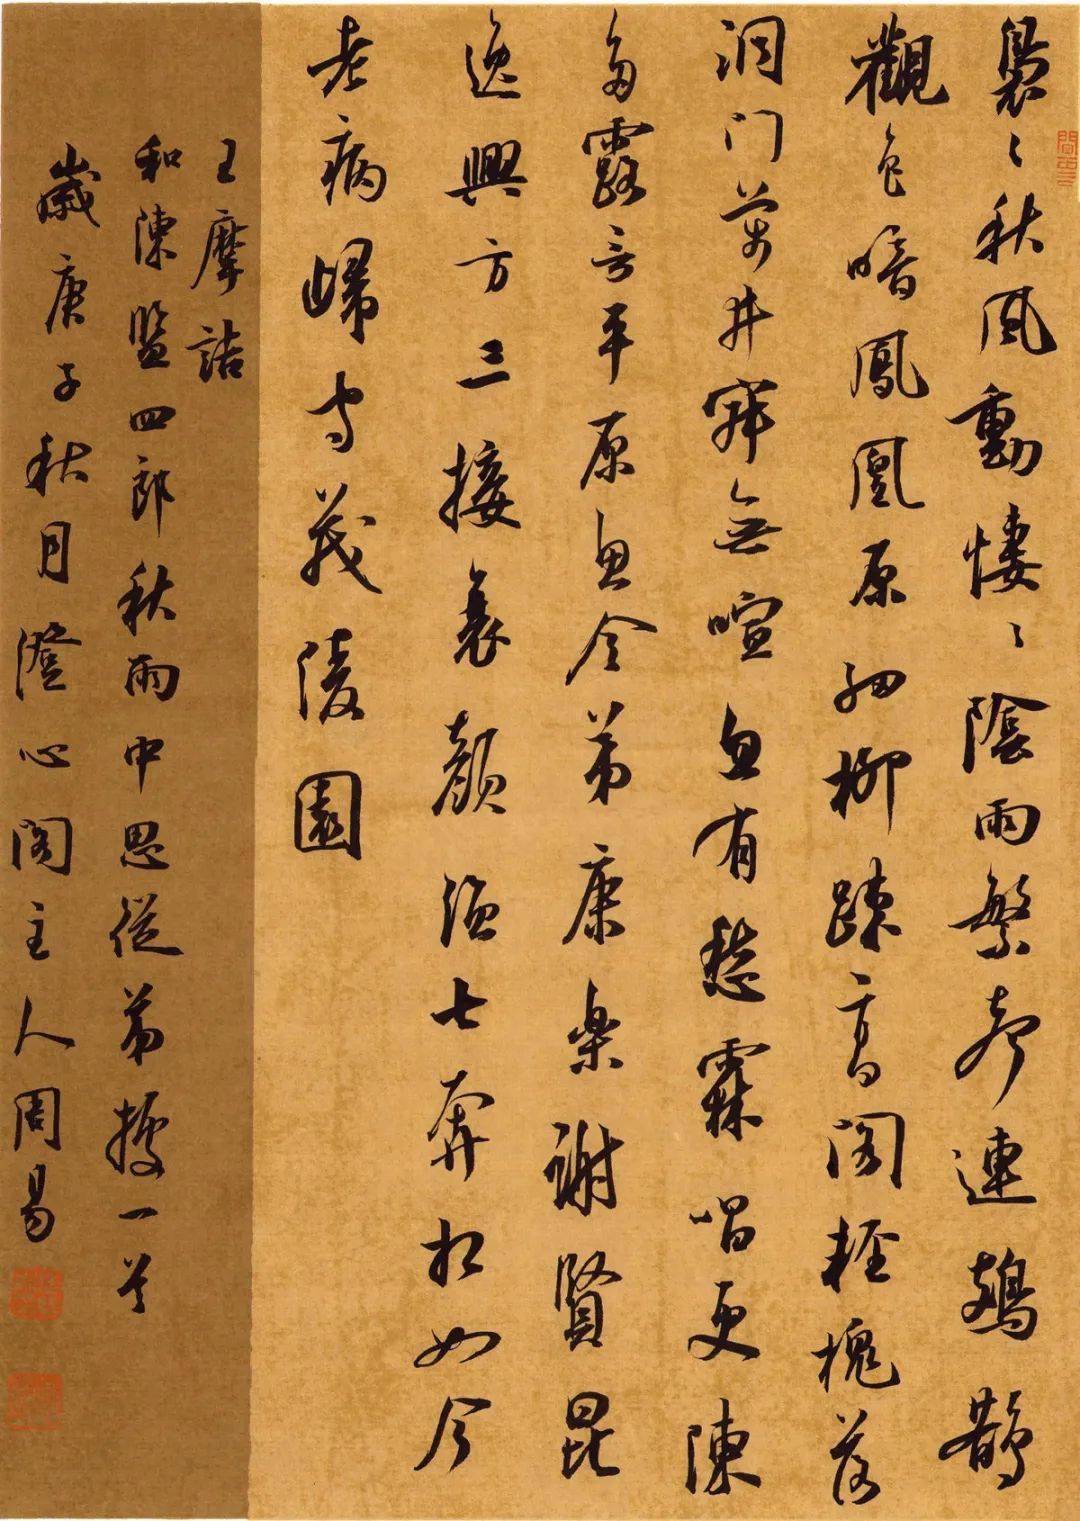 裊〻秋風動悽〻陰雨繁聲連鳷鵲
觀色暗鳳凰原細柳踈高閣輕槐落
洞門萬井寂無喧忽有愁霖唱更陳
多露言平原思令弟康樂謝賢昆
逸興方三接衰顏強七奔相如今
老病歸守茂陵園
王摩詰
和陳監四郎秋雨中思從弟據一首
歲庚子秋月澄心閣主人周易